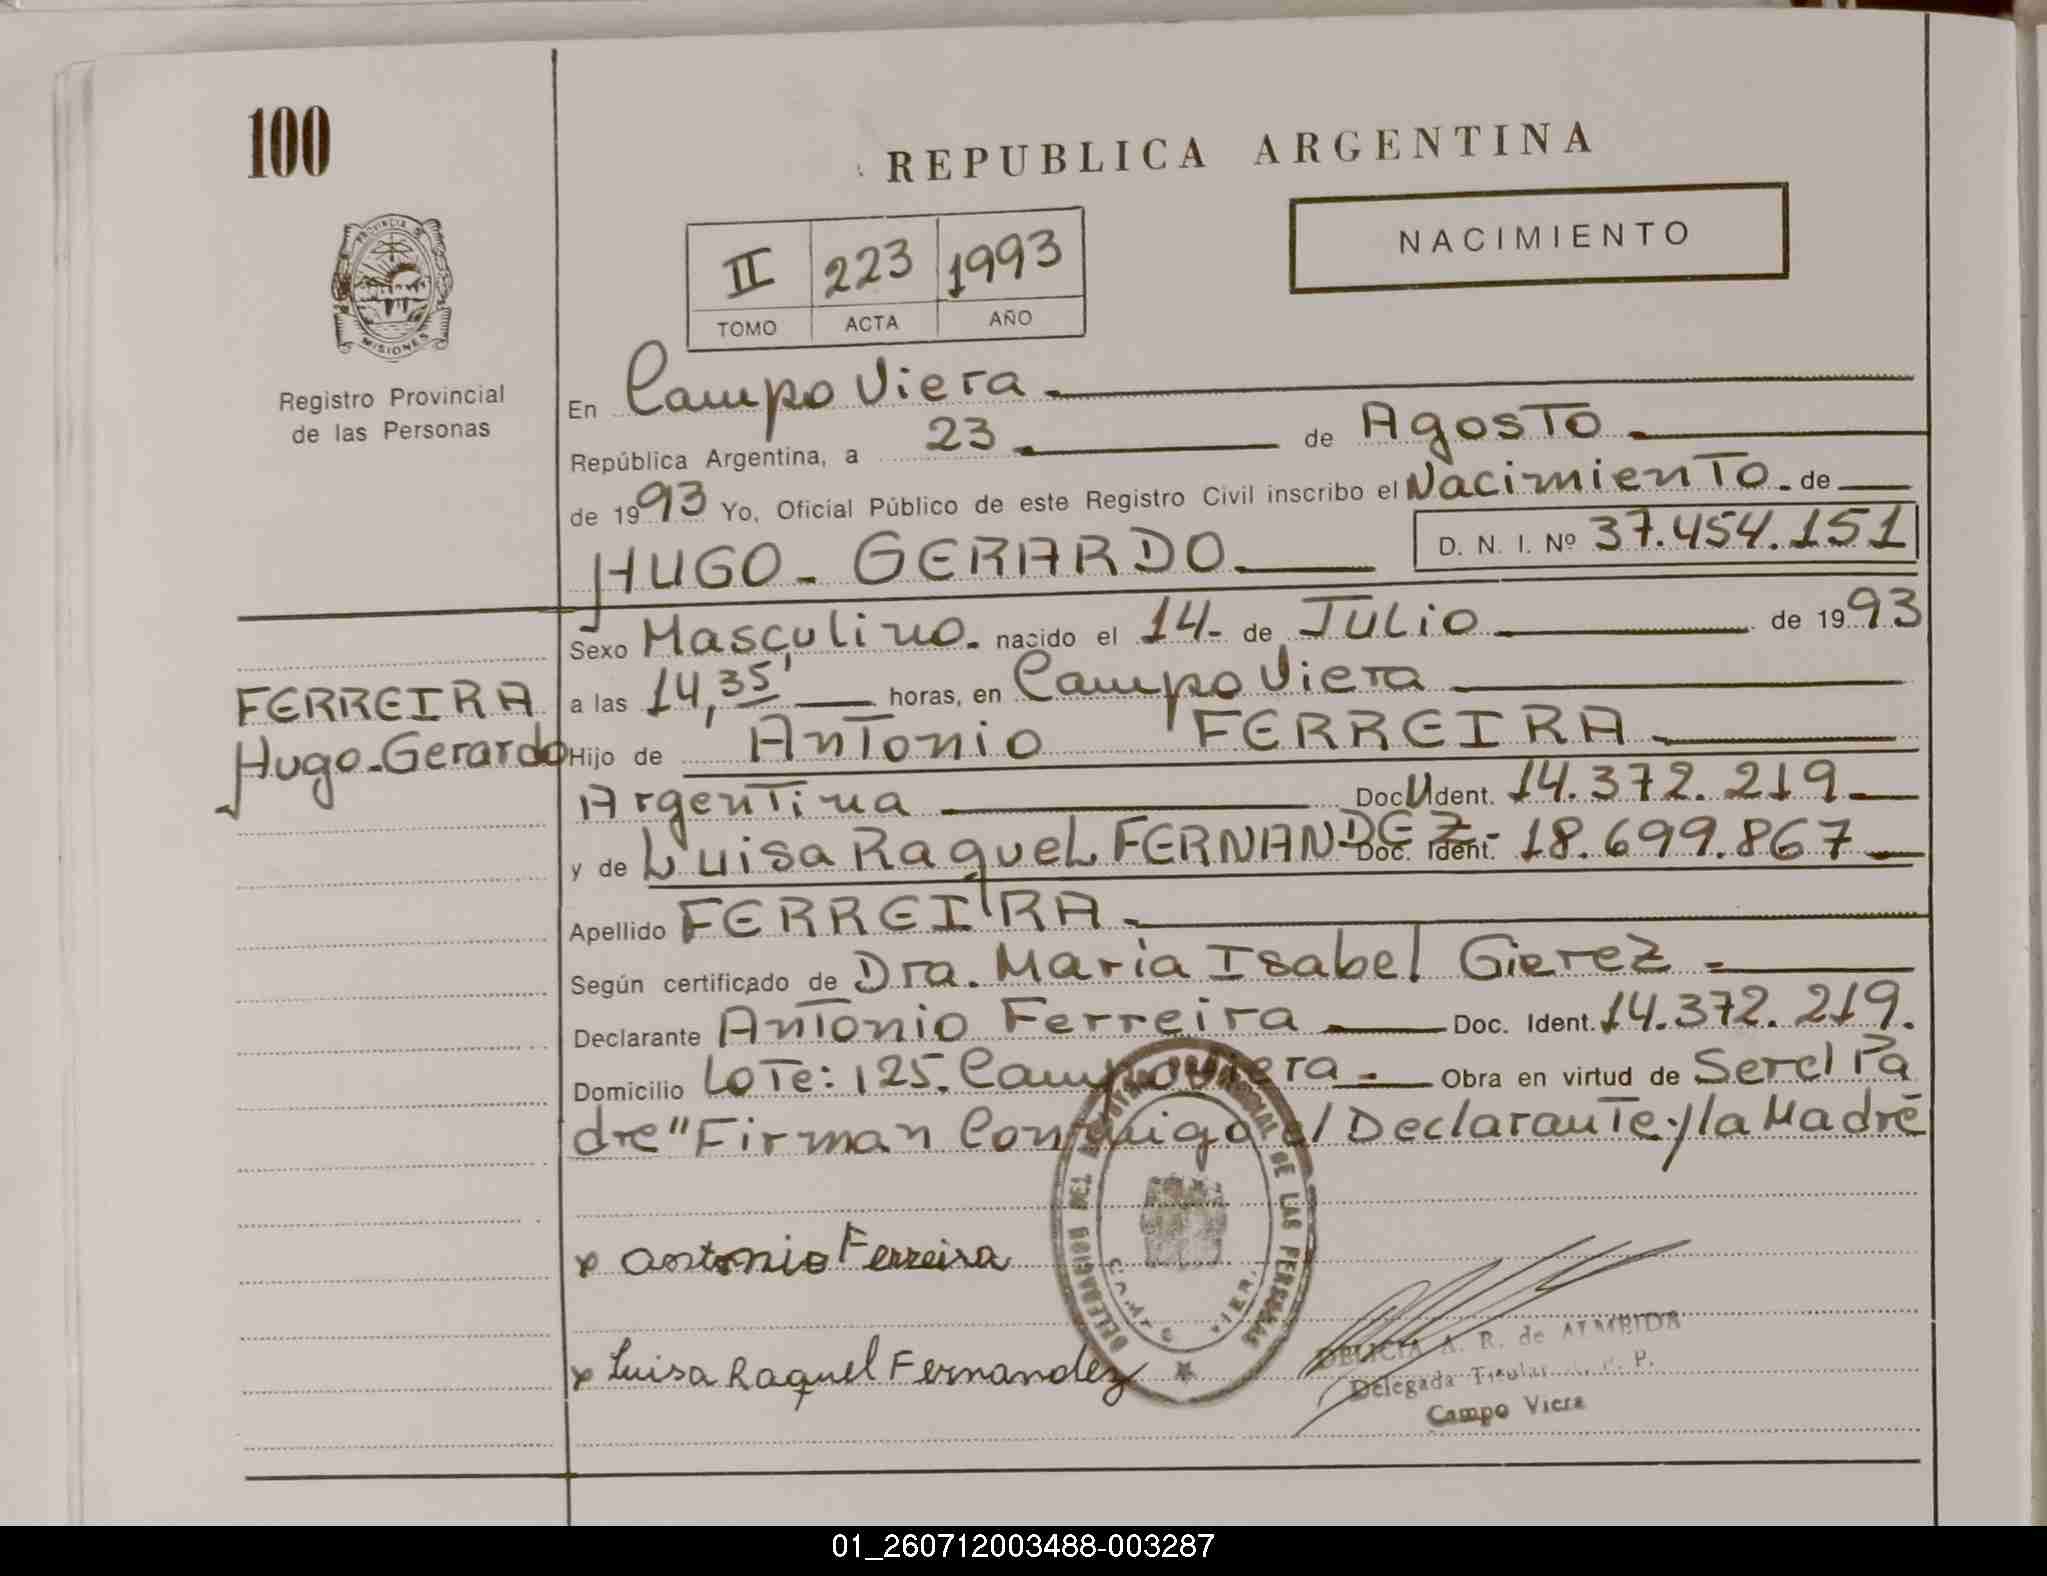 100
REPUBLICA ARGENTINA
NACIMIENTO
II 223 1993
TOMO ACTA AÑO
PROVINCIA DE
MISIONES
Registro Provincial
de las Personas
En Campo Viera
República Argentina, a 23 de Agosto
de 1993 Yo, Oficial Público de este Registro Civil inscribo el Nacimiento de
HUGO GERARDO D. N. I. Nº 37.454.151
Sexo Masculino nacido el 14 de Julio de 1993
a las 14,35' horas, en Campo Viera
FERREIRA
Hugo Gerardo
Hijo de Antonio FERREIRA
Argentina Doc. Ident. 14.372.219
y de Luisa Raquel FERNANDEZ Doc. Ident. 18.699.867
Apellido FERREIRA
Según certificado de Dra. Maria Isabel Gierez
Declarante Antonio Ferreira Doc. Ident. 14.372.219.
Domicilio Lote: 125. Campo Viera Obra en virtud de Ser el Pa
dre" Firman Conmigo el Declarante y la Madre
x antonio Ferreira
x Luisa Raquel Fernandez
DE LAS PERSONAS
DELICIA A. R. de ALMEIDA
Delegada Titular R. P. P.
Campo Viera
01_260712003488-003287